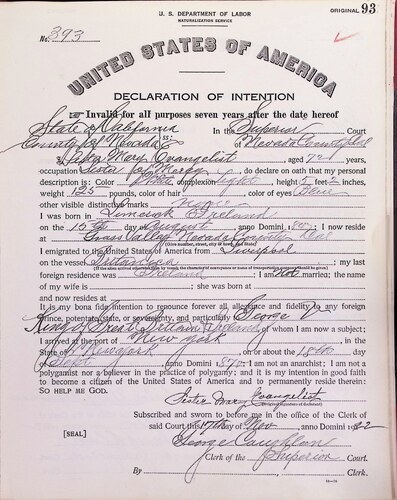 U. S. DEPARTMENT OF LABOR
NATURALIZATION SERVICE
ORIGINAL 93
No. 393
UNITED STATES OF AMERICA
DECLARATION OF INTENTION
Invalid for all purposes seven years after the date hereof
State of California
In the Superior Court
County of Nevada ss:
of Nevada County Cal
I, Sister Mary Evangelist, aged 72 years,
occupation Sister of Mercy, do declare on oath that my personal
description is: Color White, complexion light, height 5 feet 2 inches,
weight 125 pounds, color of hair, color of eyes Blue
other visible distinctive marks none
I was born in Ireland
on the 15th day of August, anno Domini 1850; I now reside
at Grass Valley Nevada County Cal
(Give number, street, city or town, and State)
I emigrated to the United States of America from Liverpool
on the vessel Britannia; my last
foreign residence was Ireland; I am not married; the name
of my wife is; she was born at
and now resides at
It is my bona fide intention to renounce forever all allegiance and fidelity to any foreign
prince, potentate, state, or sovereignty, and particularly to George V
King of Great Britain & Ireland, of whom I am now a subject;
I arrived at the port of New York, in the
State of New York, on or about the 18th day
of Sept, anno Domini 1870; I am not an anarchist; I am not a
polygamist nor a believer in the practice of polygamy; and it is my intention in good faith
to become a citizen of the United States of America and to permanently reside therein:
SO HELP ME GOD.
Sister Mary Evangelist
Subscribed and sworn to before me in the office of the Clerk of
[SEAL]
said Court this 17th day of Nov, anno Domini 1922
George Caughlan
Clerk of the Superior Court.
By, Clerk.